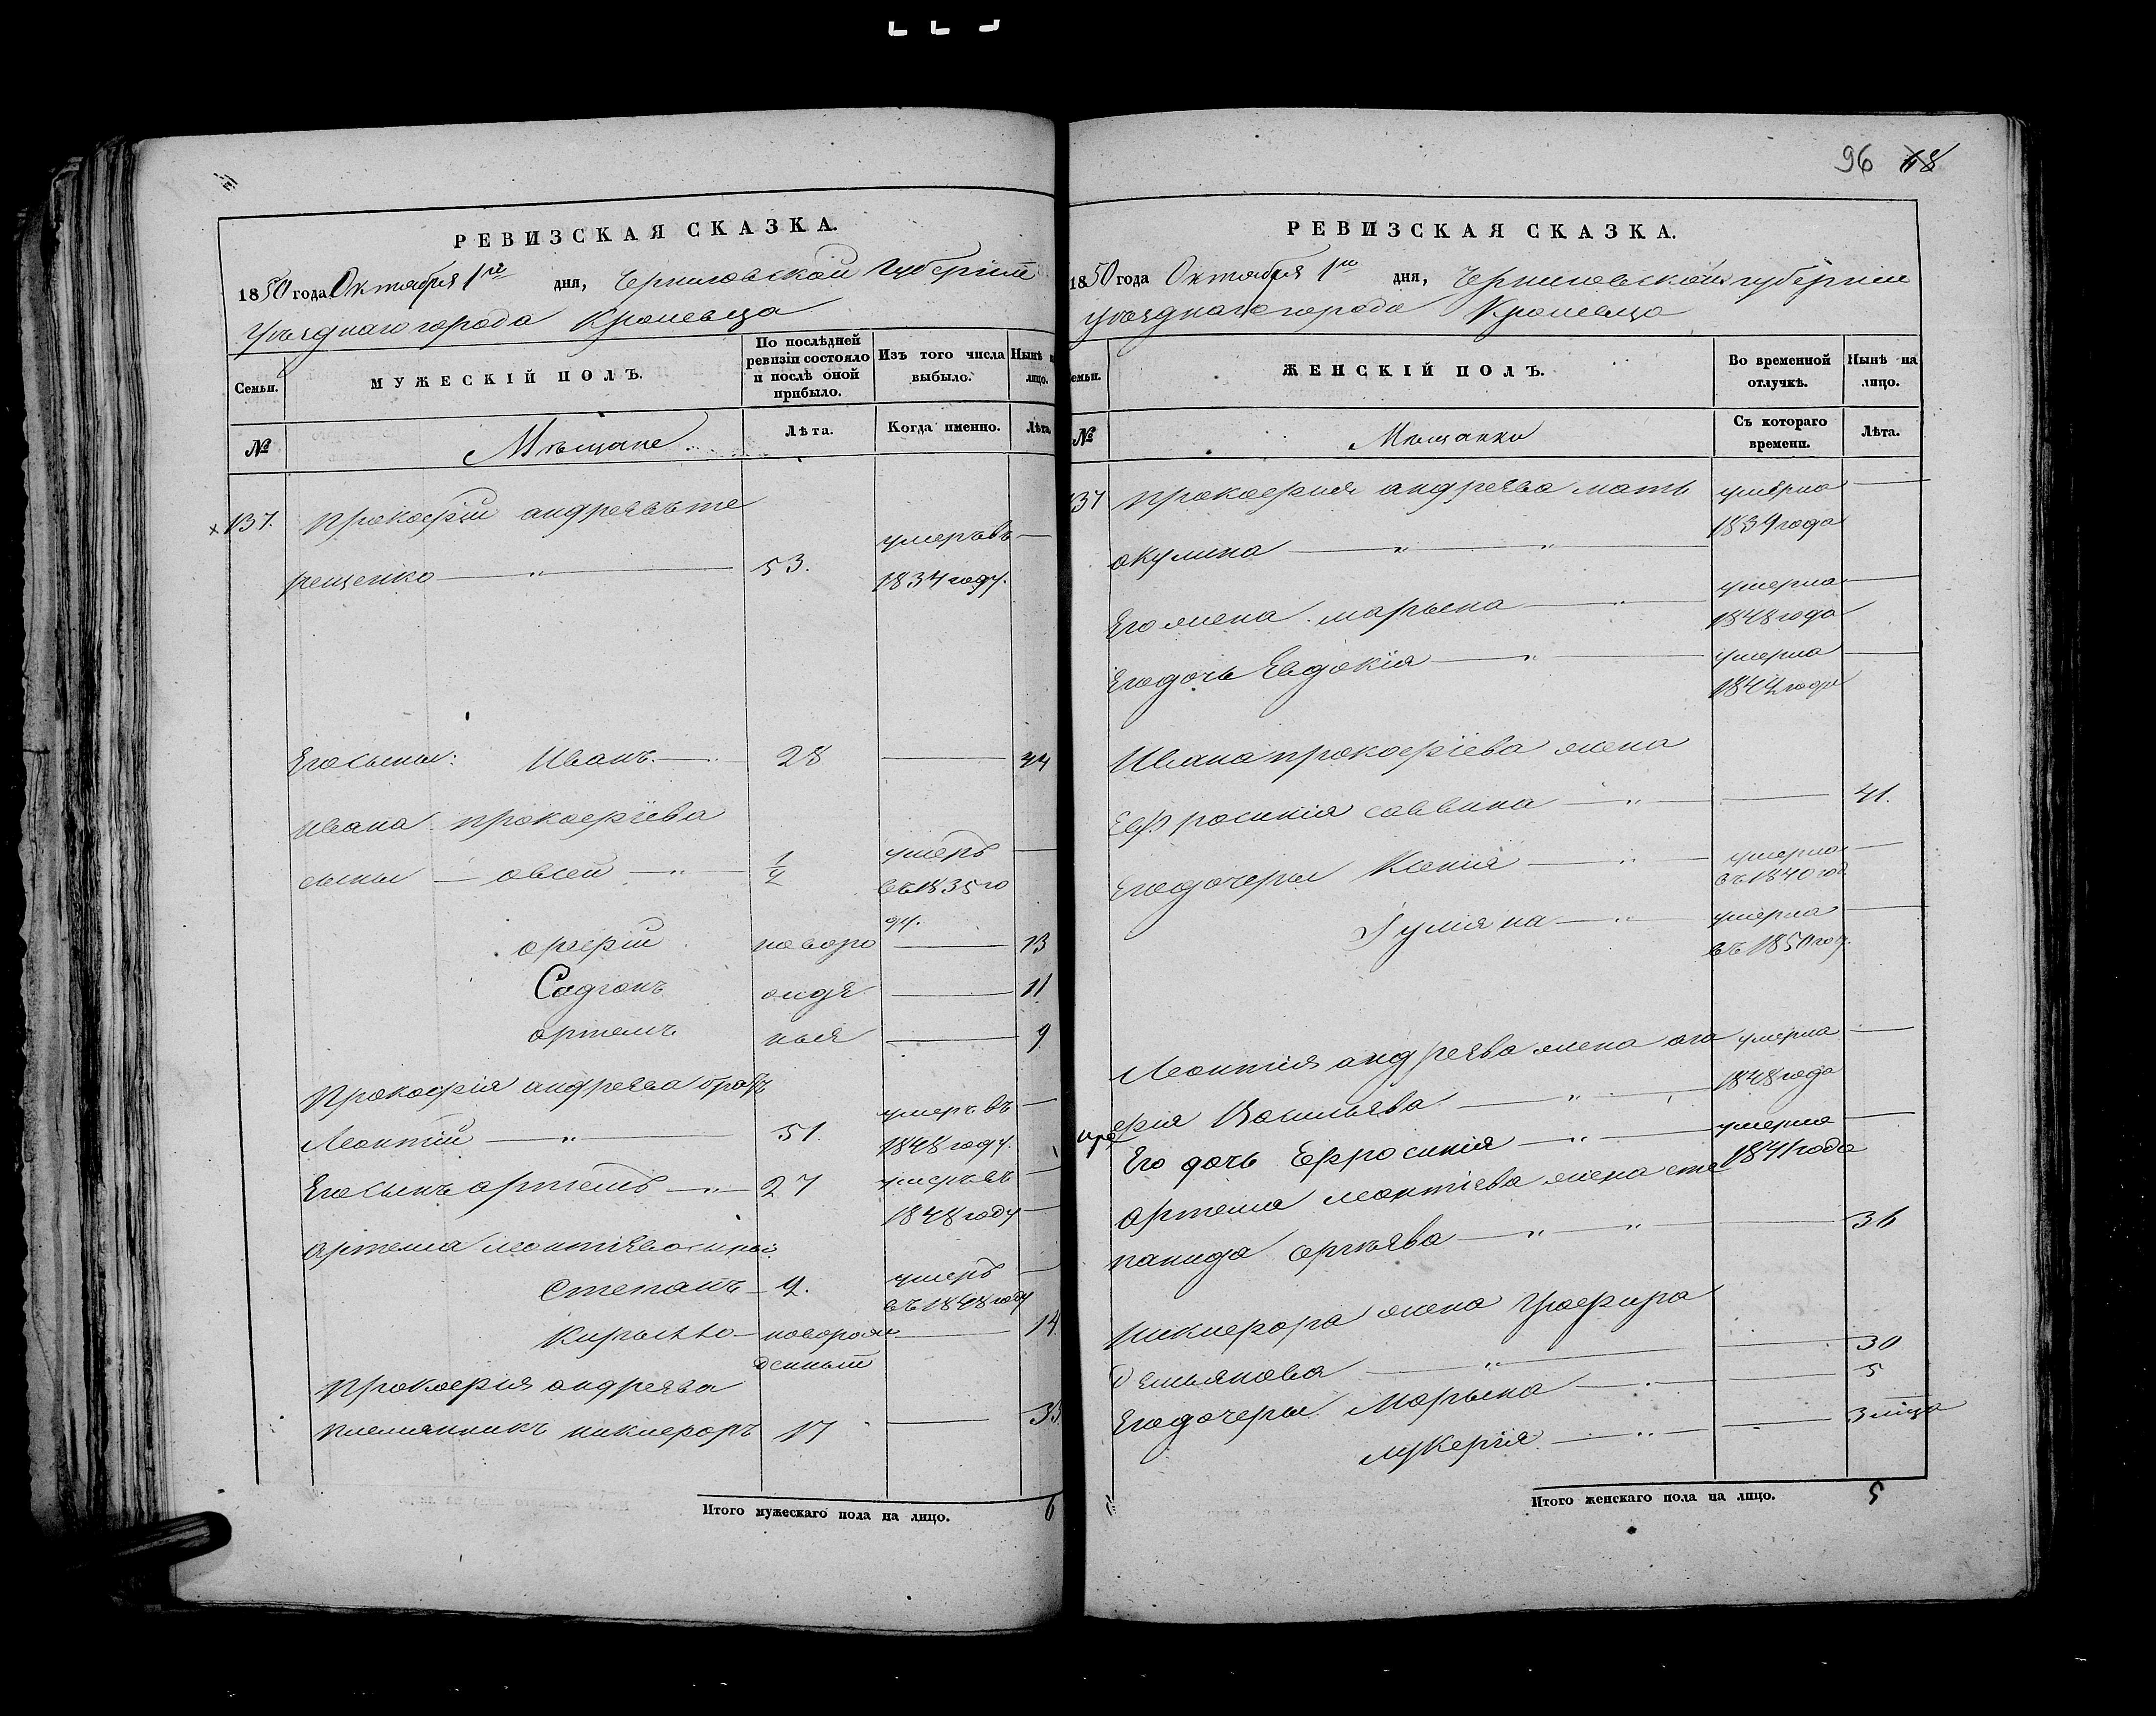 РЕВИЗСКАЯ СКАЗКА.
1850 года Октября 1го дня, Черниговской Губерніи
Уѣзднаго города Кролевца
Семьи.
МУЖЕСКІЙ ПОЛЪ.
По послѣдней ревизіи состояло и послѣ оной прибыло.
Изъ того числа выбыло.
Нынѣ на лицо.
№
Мѣщане
Лѣта.
Когда именно.
Лѣта
137. прокофій андреевъ те
рещенко 53. умеръ въ 1834 году.
Его сыны: Иванъ 28 44
Ивана прокофіева
сыны овсей 1/2 умеръ въ 1835 го
ду.
новоро 13
ожде 11
артемъ ныя 9
Прокофія андреева братъ
Леонтій 51. умеръ въ 1848 году.
Его сынъ артемъ 27 умеръ въ 1848 году
артема леонтіева сыны:
Степанъ 2. умеръ въ 1848 году
Кирыло новорож 14.
денный
Прокофія андреева
племянникъ никифоръ 17 33
Итого мужескаго пола на лицо. 6
96 48
РЕВИЗСКАЯ СКАЗКА.
1850 года Октября 1го дня, Черниговской губерніи
уѣзднаго города Кролевца
семьи.
ЖЕНСКІЙ ПОЛЪ.
Во временной отлучкѣ.
Нынѣ на лицо.
№
Мѣщанки
Съ котораго времени.
Лѣта.
137 прокофія андреева мать умерла
акулина 1834 года
Его жена марына умерла 1848 года
Его дочь Евдокія умерла 1844 года
Ивана прокофіева жена
Евфросинія саввина 41.
Его дочеры Ксенія умерла въ 1840 год
Гуліяна умерла въ 1850 году.
Леонтія андреева жена ага умерла
фія Васильева 1848 года
Его дочь Ефросинія умерла 1841 года
артема леонтіева жена сте
панида сергѣева 36
Никифора жена Глафира
демьянова 30
Его дочеры Марына 5
лукерія 3 мѣсяца
Итого женскаго пола на лицо. 5